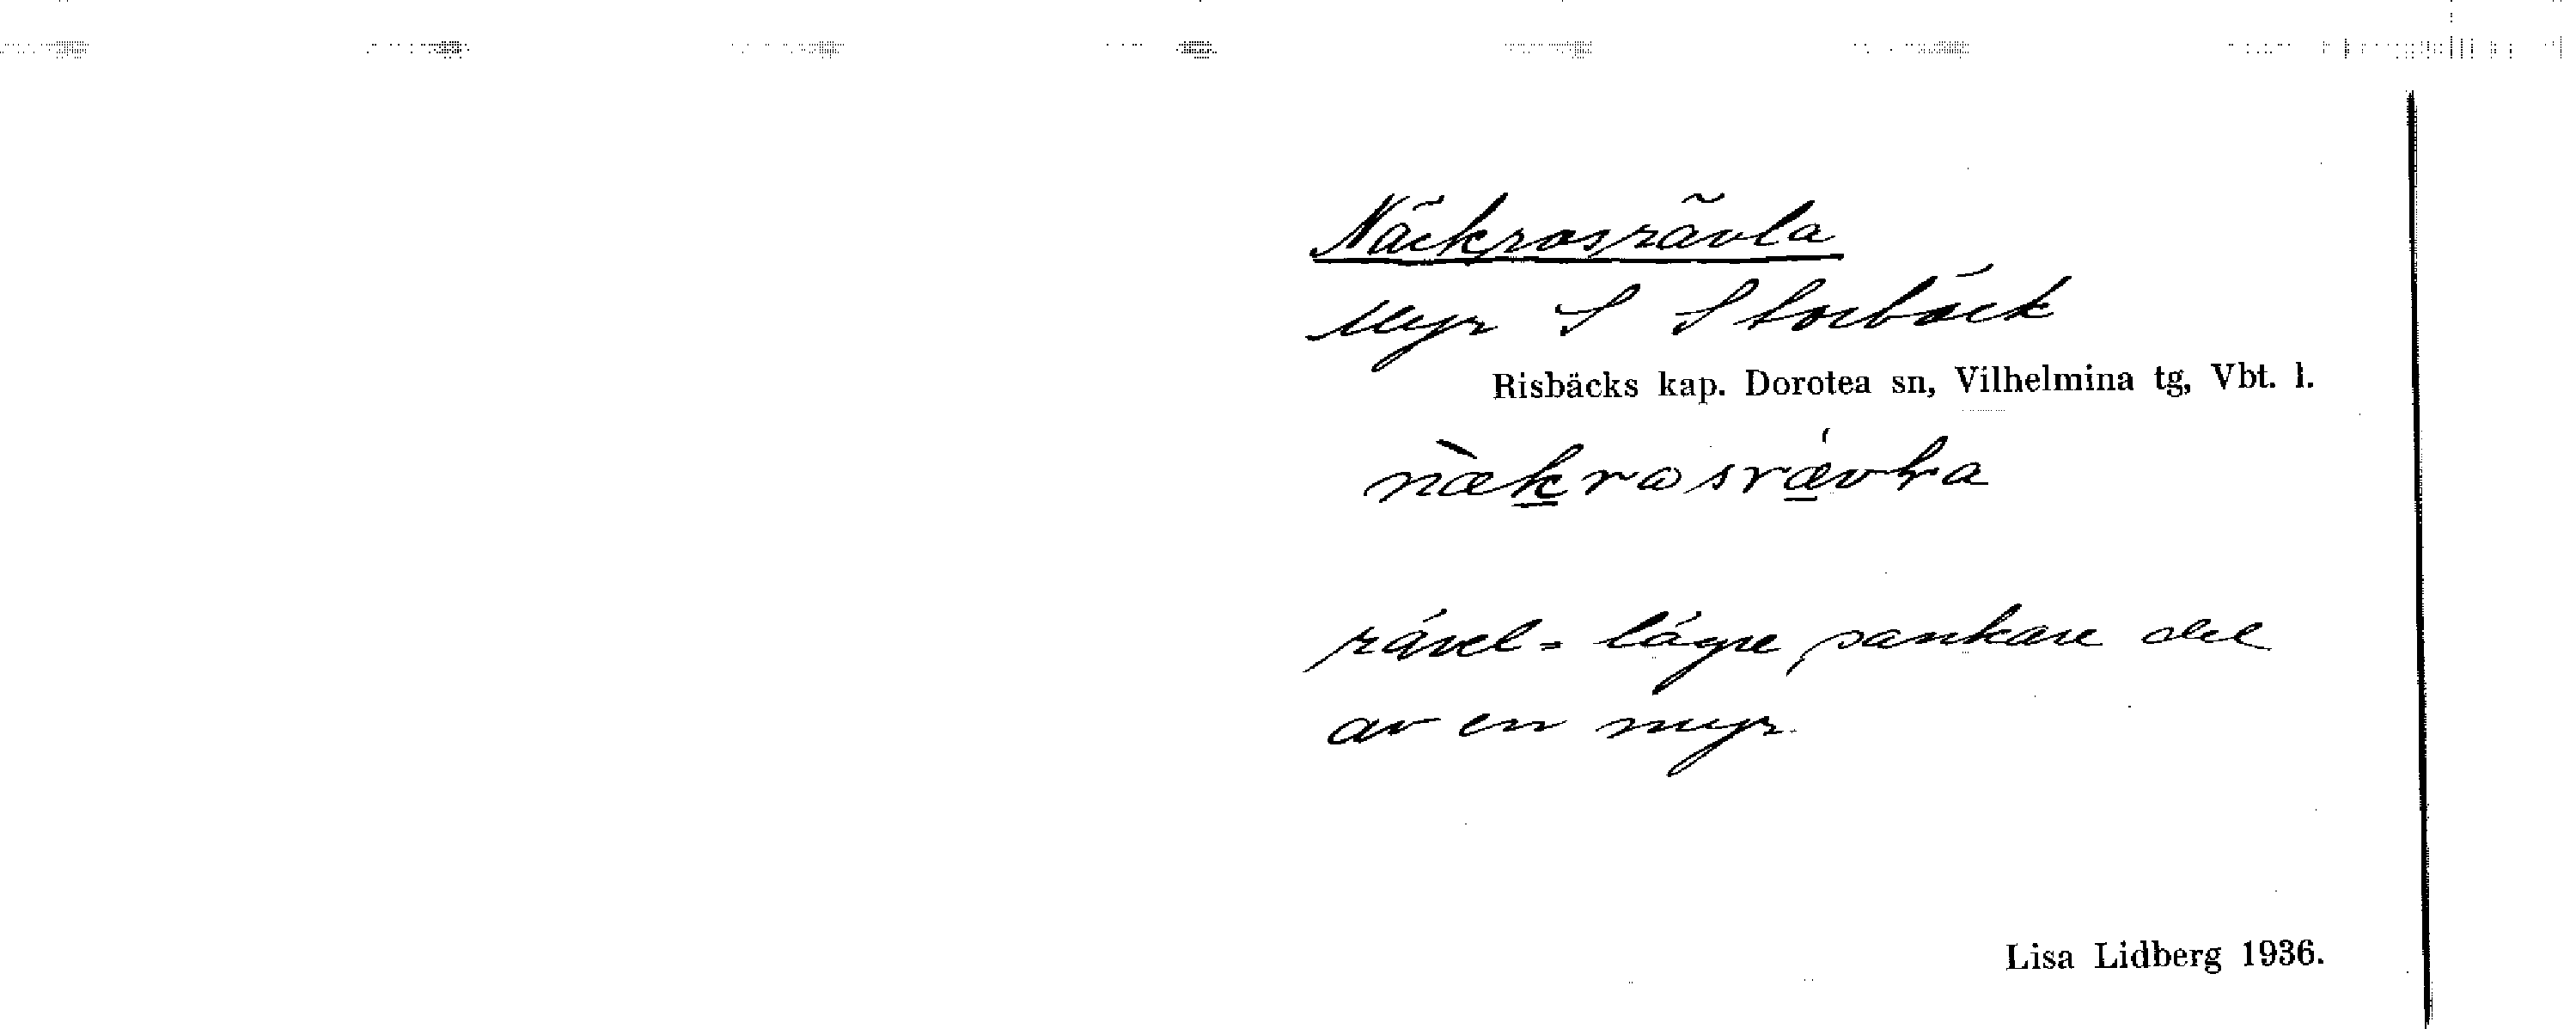 Näckrosrävla
Myr S Storbäck
Risbäcks kap. Dorotea sn, Vilhelmina tg, Vbt. l.
nækrosrævla
rävel = lägre, sankare del
av en myr.
Lisa Lidberg 1936.